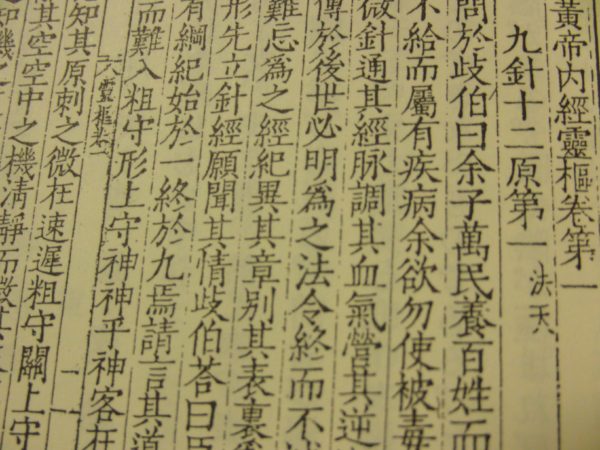 黃帝內經靈樞卷第一
九針十二原第一 法天
問於歧伯曰余子萬民養百姓而
不給而屬有疾病余欲勿使被毒
微針通其經脉調其血氣營其逆
傳於後世必明為之法令終而不
難忘為之經紀異其章別其表裏
形先立針經願聞其情歧伯荅曰臣
有綱紀始於一終於九焉請言其道
而難入粗守形上守神神乎神客在
靈樞卷一
知其原刺之微在速遲粗守關上守
其空空中之機清靜而微其
知機之